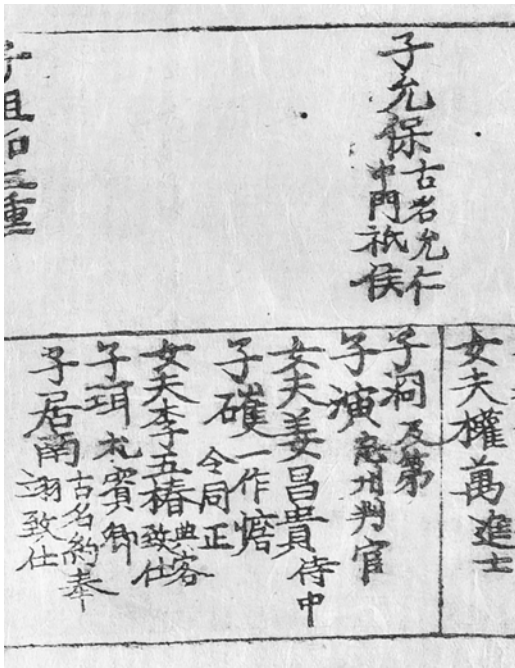 子允保
古名允仁
中門祗侯
女夫權萬 進士
子 及第
子演 州判官
女夫姜昌貴 侍中
子 一作
令同正
女夫李五椿
典客
致仕
子 礼賓卿
子居南
古名約奉
翊致仕